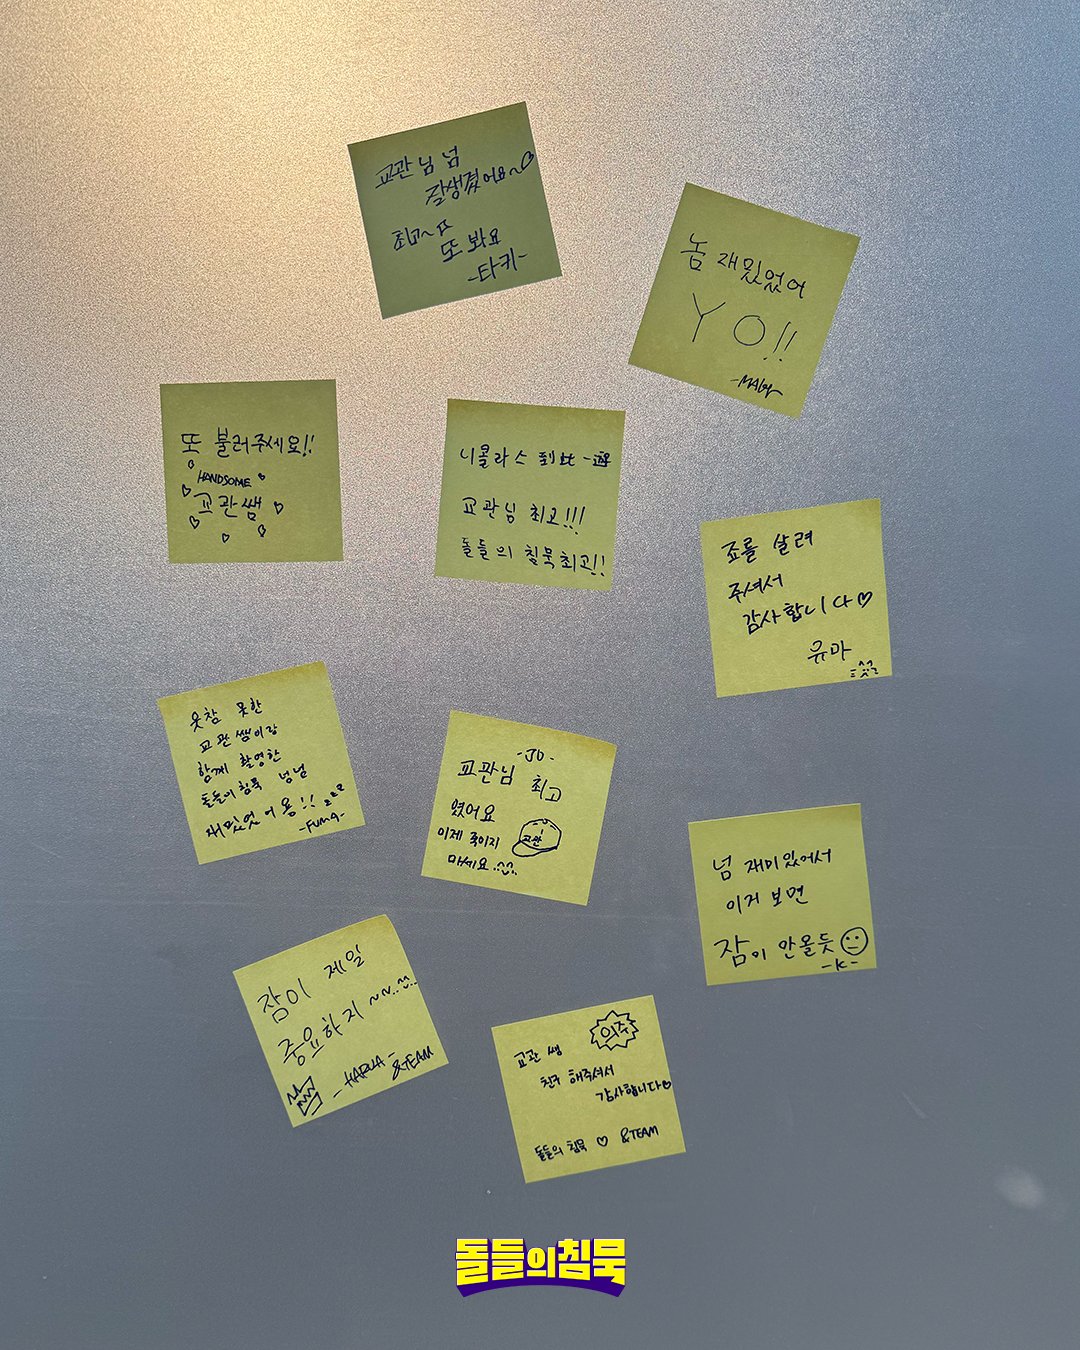 교관님 넘
잘생겼어요~♡
최고~
또 봐요
-타키-
놈 재밌었어
YO!!
또 불러주세요!!
HANDSOME
교관쌤
니콜라스 到此一遊
교관님 최고!!!
돌들의 침묵 최고!!
죠를 살려
주셔서
감사합니다♡
유마
웃참 못한
교관쌤이랑
함께 촬영한
돌들의 침묵 넘넘
재밌었어용!!
-FUMA-
-JO-
교관님 최고
였어요
교관
이제 죽이지
마세요
넘 재미있어서
이거 보면
잠이 안올듯
-K-
잠이 제일
중요하지~~
-HARUA-
&TEAM
의주
교관 쌤
친구 해주셔서
감사합니다♡
돌들의 침묵 ♡ &TEAM
돌들의침묵